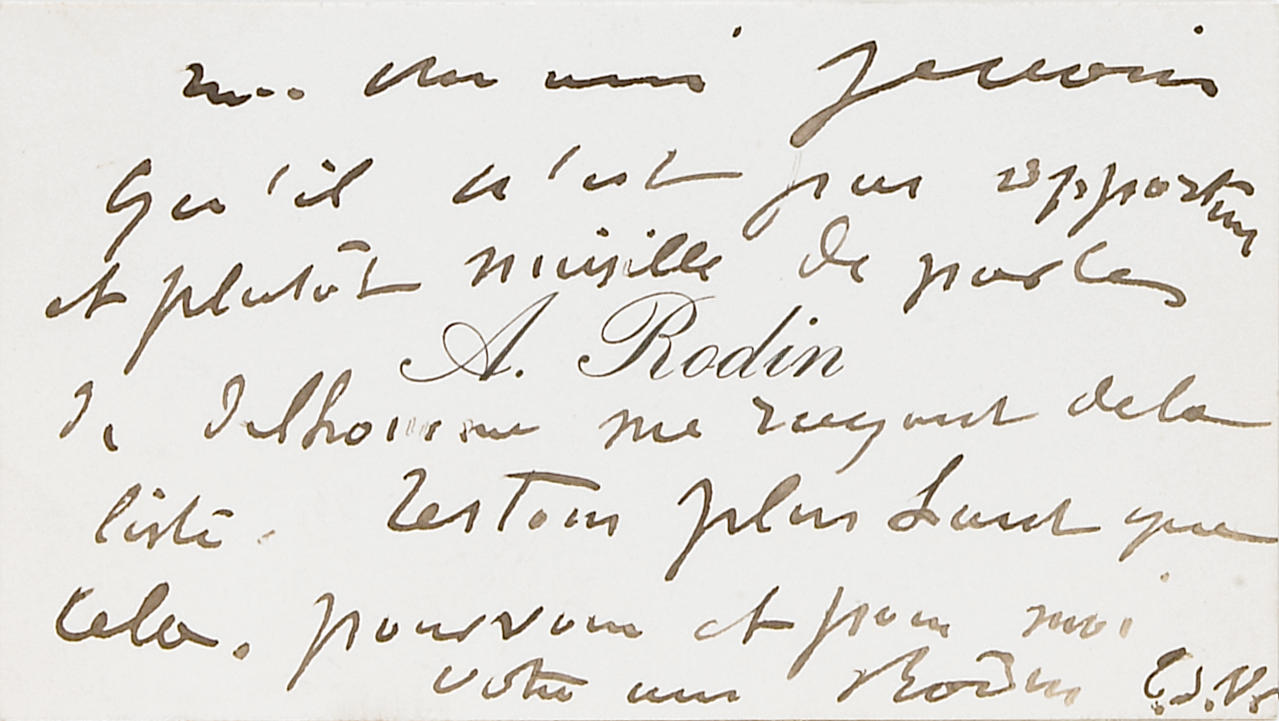 mon cher ami je crois
qu'il n'est pas opportun
et plutôt nuisible de parler
A. Rodin
de Delhomme me rayant de la
liste. restons plus haut que
cela. pour vous et pour moi
votre ami Rodin T.S.V.